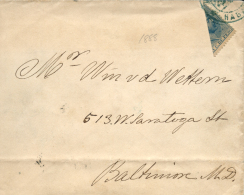 1888
Mr Win v d Wettern
513 W. Saratoga St
Baltimore M.D.